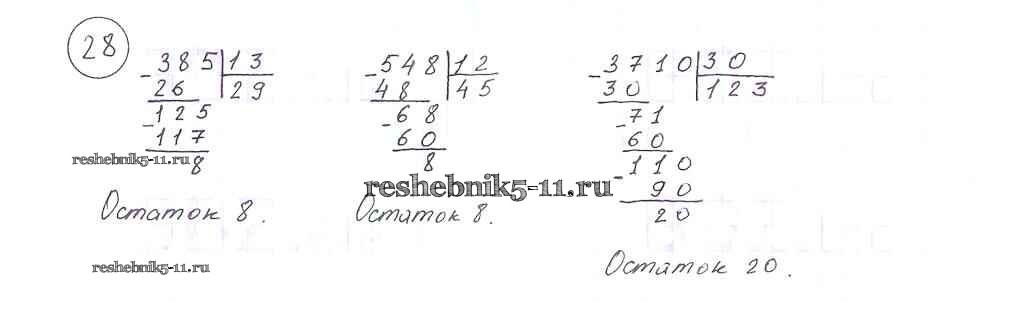 28
385 | 13
- 26 | 29
125
- 117
8
reshebnik5-11.ru
Остаток 8.
reshebnik5-11.ru
- 548 | 12
48 | 45
- 68
60
8
reshebnik5-11.ru
Остаток 8.
- 3710 | 30
30 | 123
- 71
60
- 110
90
20
Остаток 20.